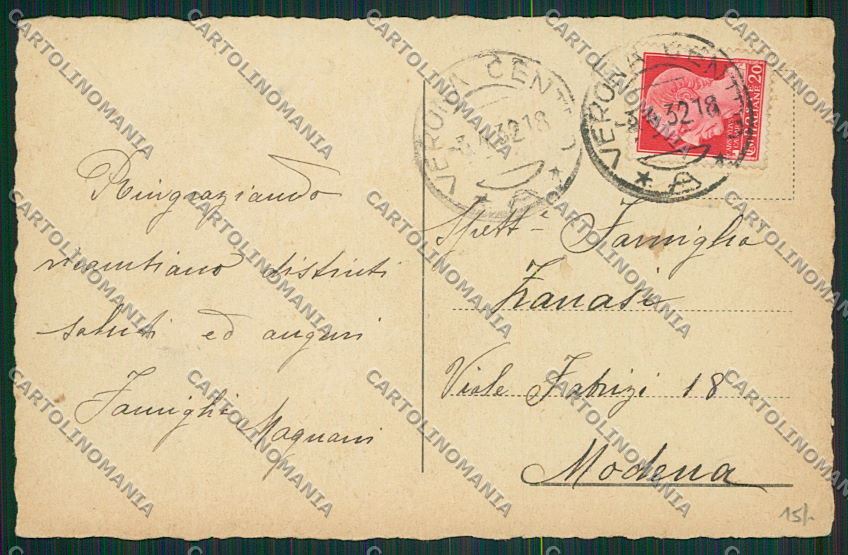 Ringraziando
ricambiano distinti
saluti ed auguri
Famiglia Magnani
VERONA CENTRO
32 18
A
VERONA CENTRO
32 18
A
20
ITALIANE
Spett. Famiglia
Viale Fabrizi 18
Modena
15/-
CARTOLINOMANIA